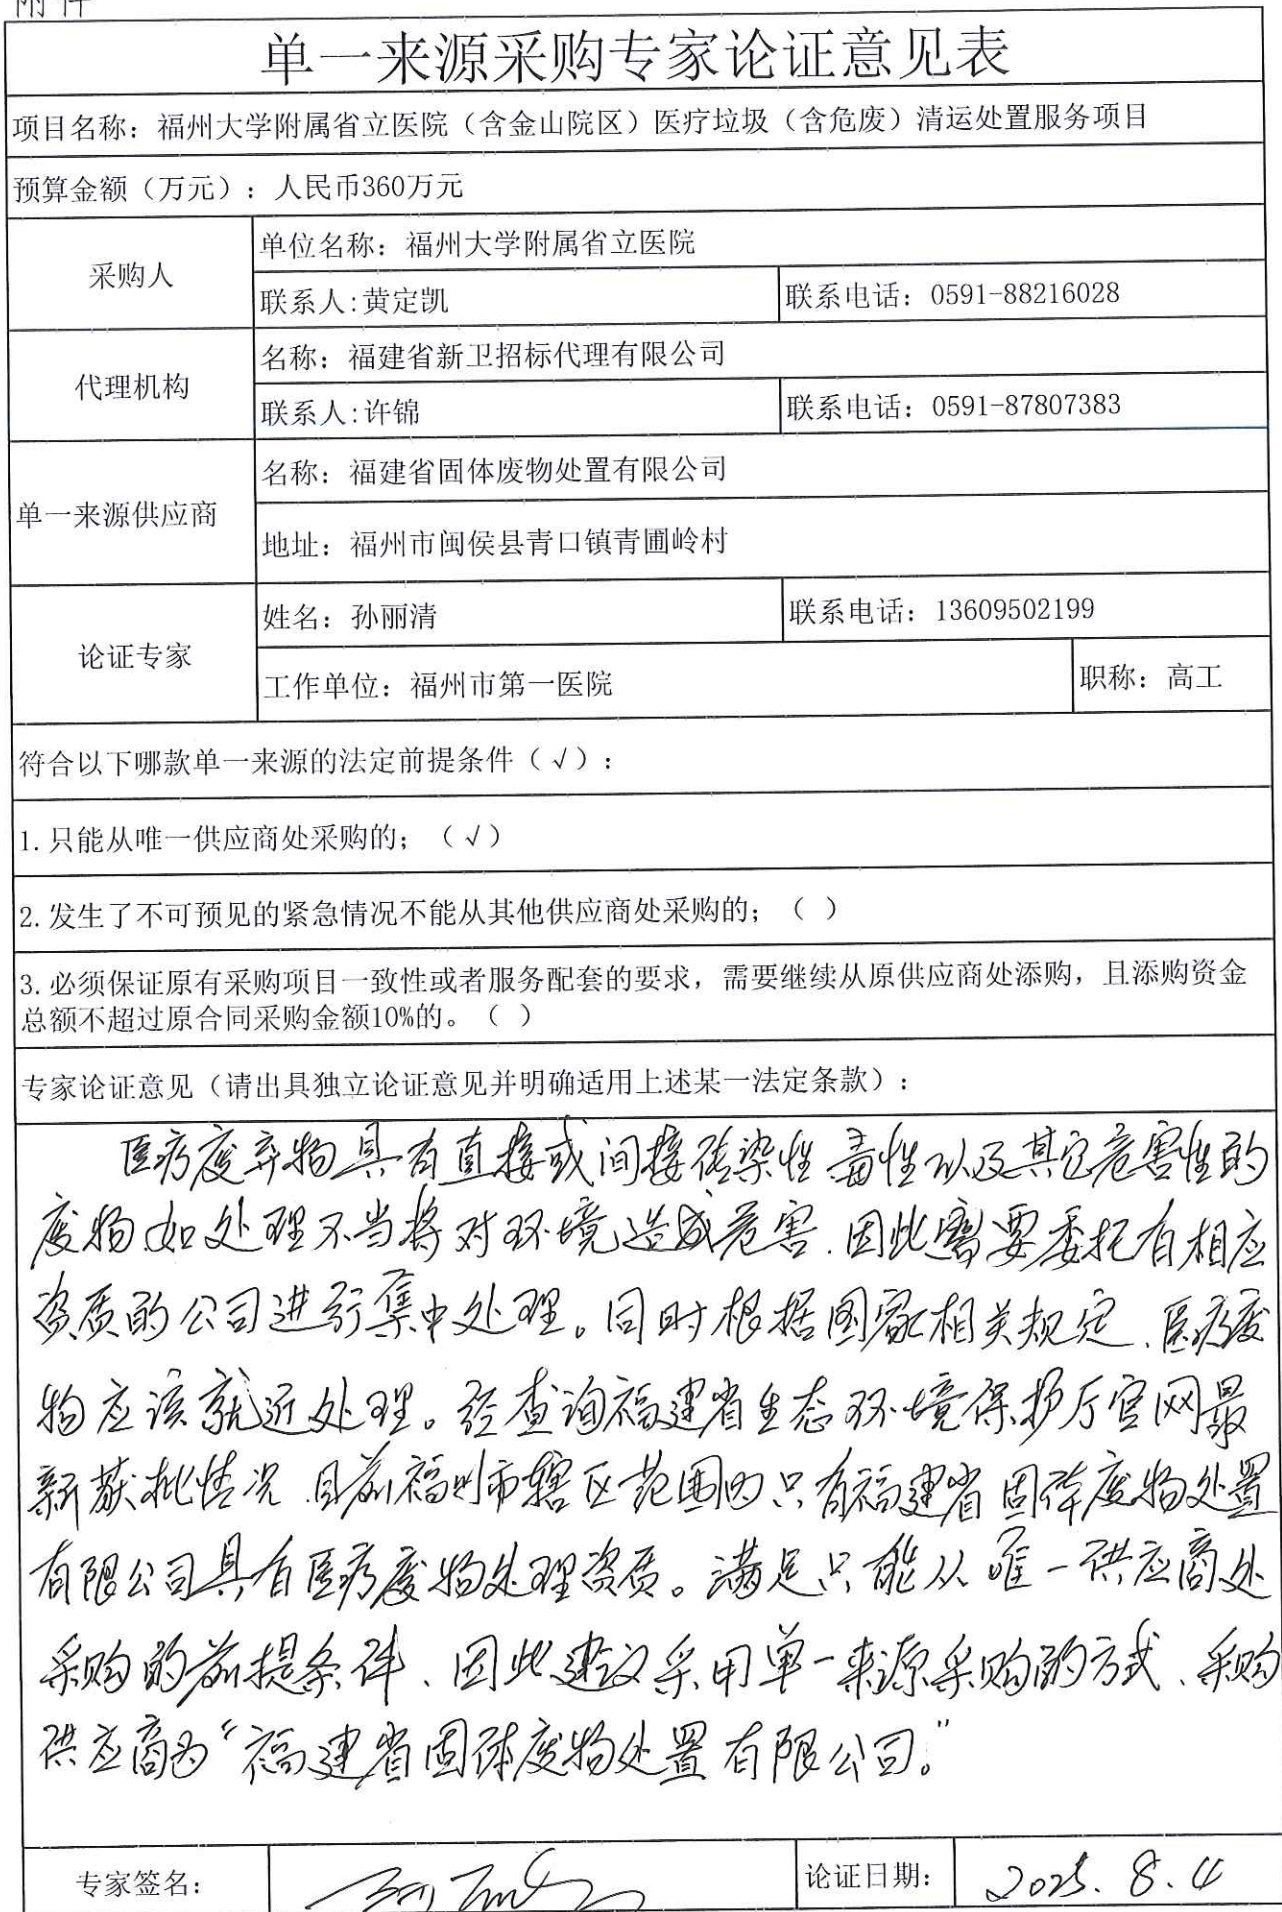 附件
单一来源采购专家论证意见表
项目名称：福州大学附属省立医院（含金山院区）医疗垃圾（含危废）清运处置服务项目
预算金额（万元）：人民币360万元
采购人
单位名称：福州大学附属省立医院
联系人:黄定凯
联系电话：0591-88216028
代理机构
名称：福建省新卫招标代理有限公司
联系人:许锦
联系电话：0591-87807383
单一来源供应商
名称：福建省固体废物处置有限公司
地址：福州市闽侯县青口镇青圃岭村
论证专家
姓名：孙丽清
联系电话：13609502199
工作单位：福州市第一医院
职称：高工
符合以下哪款单一来源的法定前提条件（√）：
1.只能从唯一供应商处采购的；（√）
2.发生了不可预见的紧急情况不能从其他供应商处采购的；（ ）
3.必须保证原有采购项目一致性或者服务配套的要求，需要继续从原供应商处添购，且添购资金
总额不超过原合同采购金额10%的。（ ）
专家论证意见（请出具独立论证意见并明确适用上述某一法定条款）：
医疗废弃物具有直接或间接传染性、毒性以及其它危害性的
废物如处理不当将对环境造成危害、因此需要委托有相应
资质的公司进行集中处理。同时根据国家相关规定、医疗废
物应该就近处理。经查询福建省生态环境保护厅官网最
新获批情况、目前福州市辖区范围内只有福建省固体废物处置
有限公司具有医疗废物处理资质。满足只能从唯一供应商处
采购的前提条件、因此建议采用单一来源采购的方式、采购
供应商为“福建省固体废物处置有限公司。”
专家签名：
论证日期：
2025.8.4